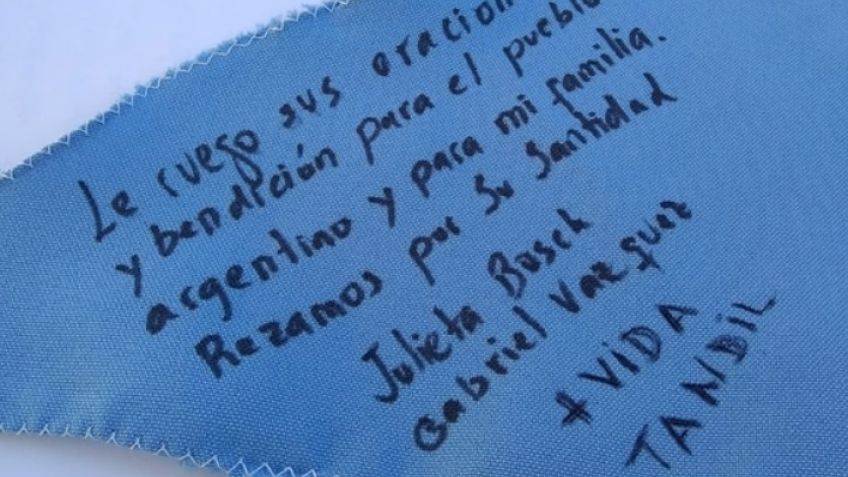 Le ruego sus oracion
y bendición para el pueblo
argentino y para mi familia.
Rezamos por Su Santidad
Julieta Bosch
Gabriel Vazquez
#VIDA
TANDIL